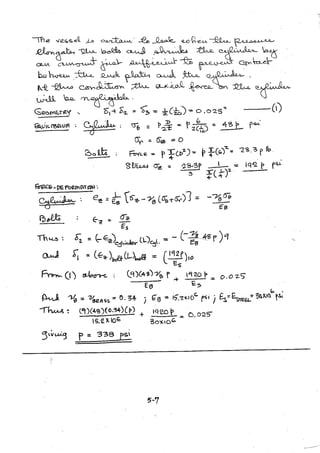 The vessel is certain to leak when the pressure
elongates the bolts and shrinks the cylinder by
an amount just sufficient to prevent contact
between the end plates and the cylinder.
At this condition the axial force on the cylinder
will be negligible.
GEOMETRY: δ₁ + δ₂ = δ₃ = ½(1/20) = 0.025" —(1)
EQUILIBRIUM: Cylinder: σθ = p D/2t = = 48 p psi
σr = σz = 0
Bolts: Force = p π/4 (D²) = p π/4 (6)² = 28.3 p lb.
Stress σz = 28.3p / 3 · 1 / π/4( )² = 192 p psi
FORCE-DEFORMATION:
Cylinder: = 1/EB [ σz - νB (σθ+σr) ] = -νB σθ / EB
Bolts: εz = σz / Es
Thus: δ₂ = (-εz)cylinder (L)cyl. = - (-νB/EB 48 p) 9
and δ₁ = (εz)bolt (L)bolt = (192p / Es) 10
From (1) above: (9)(48) νB p / EB + 1920 p / Es = 0.025
And νB = νBRASS = 0.34 ; EB = 15.2x10⁶ psi ; Es = ESTEEL = 30x10⁶ psi
Thus: (9)(48)(0.34)(p) / 15.2x10⁶ + 1920 p / 30x10⁶ = 0.025
giving p = 338 psi
5-7